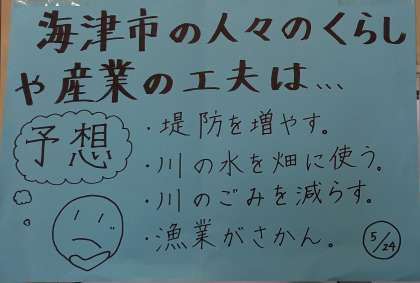 海津市の人々のくらし
や産業の工夫は…
予想
・堤防を増やす。
・川の水を畑に使う。
・川のごみを減らす。
・漁業がさかん。
5/24